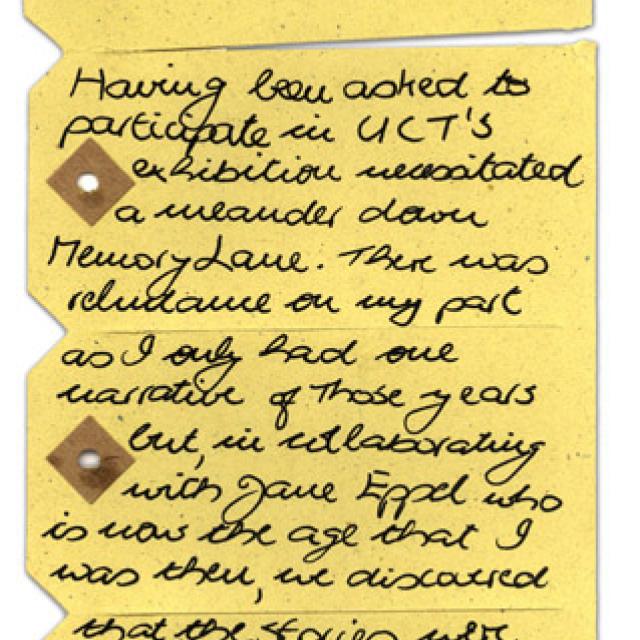 Having been asked to
participate in UCT's
exhibition necessitated
a meander down
Memory Lane. There was
reluctance on my part
as I only had one
narrative of those years
but, in collaborating
with Jane Eppel who
is now the age that I
was then, we discovered
that the stories were